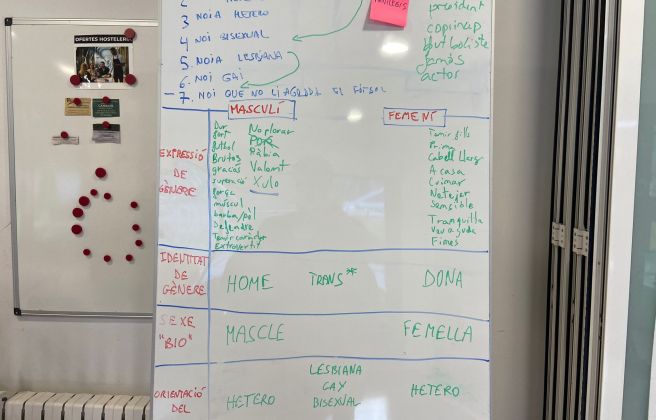 OFERTES HOSTELERIA
3 NOIA HETERO
4 NOI BISEXUAL
5. NOIA LESBIANA
6. NOI GAI
7. NOI QUE NO LI AGRADA EL FÚTBOL
president
coprincep
futboliste
famós
actor
MASCULÍ
FEMENÍ
EXPRESSIÓ
DE
GÈNERE
Dur
fort
futbol
Brutos
gracós
superació
força
múscul
barba/pèl
Defendre
Tenir caràcter
Extrovertit
No plorar
Ràbia
Valent
Xulo
Tenir fills
Prima
Cabell Llarg
A casa
Cuinar
Netejar
Sensible
Tranquilla
Veu aguda
Fines
IDENTITAT
DE
GÈNERE
HOME
TRANS*
DONA
SEXE
"BIO"
MASCLE
FEMELLA
ORIENTACIÓ
DEL
HETERO
LESBIANA
GAY
BISEXUAL
HETERO